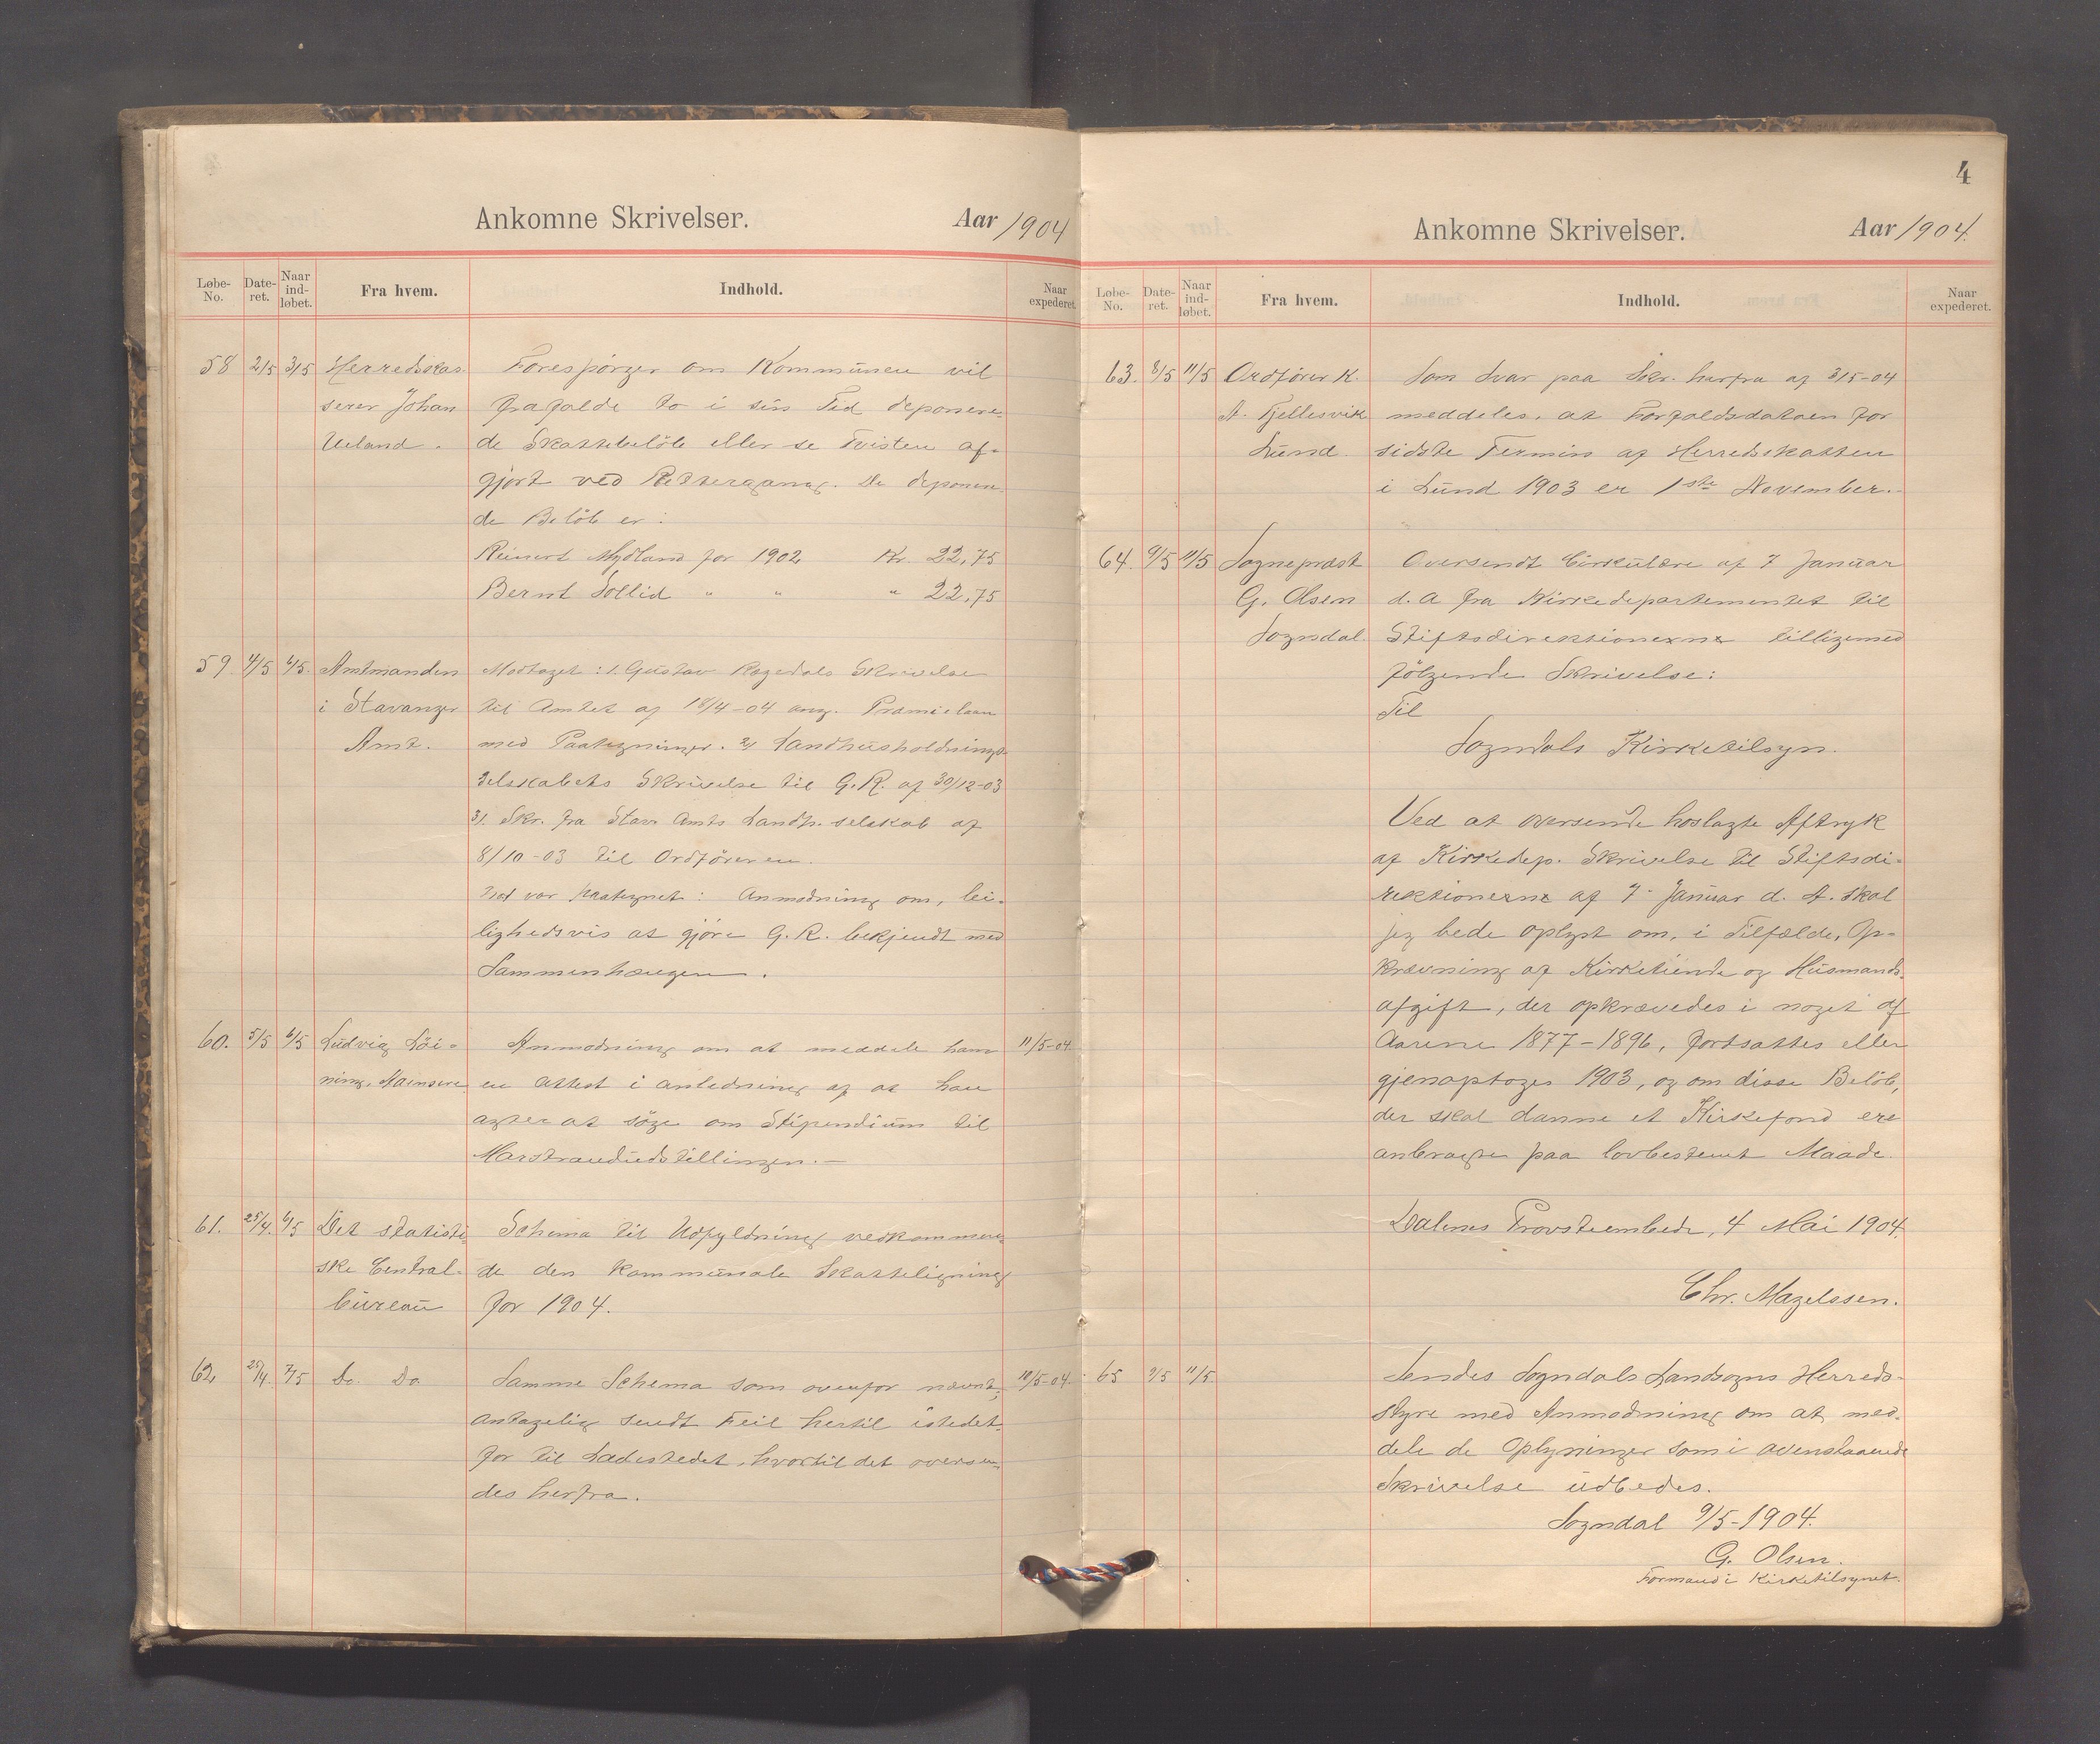 Ankomne Skrivelser. Aar 1904
Løbe-No. Date-ret. Naar ind-løbet. Fra hvem. Indhold. Naar expederet.
58 2/5 3/5 Herredskas- Forespørger om Kommunen vil
serer Johan frafalde to i sin Tid deponere-
Ueland. de Skattebeløb eller se Tvisten af-
gjort ved Rettergang. De deponere-
de Beløb er:
Reinert Mydland for 1902 Kr. 22,75
Bernt Sollid " " " 22,75
59 4/5 6/5 Amtmanden Modtaget: 1. Gustav Ragedals Skrivelse
i Stavanger til Amtet af 18/4-04 ang. Præmielaan
Amt. med Paategninger. 2) Landhusholdnings-
selskabets Skrivelse til G.R. af 30/12-03
3/. Skr. fra Stav. Amts Landh. selskab af
8/10-03 til Ordføreren.
Ved var paategnet: Anmodning om, lei-
lighedsvis at gjøre G.R. bekjendt med
Sammenhængen.
60. 5/5 6/5 Ludvig Løi- Anmodning om at meddele ham 11/5-04
ning, en Attest i anledning af at han
agter at søge om Stipendium til
Marstrandudstillingen.-
61. 25/4. 6/5 Det statisti- Schema til Udfyldning vedkommen-
ske Central- de den kommunale Skatteligning
bureau for 1904.
62 25/4. 7/5 Do. Do. Samme Schema som ovenfor nævnt, 10/5-04.
antagelig sendt Feil hertil istedet-
for til Ladestedet, hvortil det oversen-
des herfra.
4
Ankomne Skrivelser. Aar 1904.
Løbe-No. Date-ret. Naar ind-løbet. Fra hvem. Indhold. Naar expederet.
63. 8/5 11/5 Ordfører K. Som Svar paa Skr. herfra af 3/5-04
A. Fjellesvik meddeles, at Forfaldsdatoen for
Lund. sidste Termin af Herredskatten
i Lund 1903 er 1ste November.-
64. 9/5 11/5 Sogneprest Oversendt Cirkulære af 7 Januar
G. Olsen d.A fra Kirkedepartementet til
Sogndal. Stiftsdirektionerne tilligemed
følgende Skrivelse:
Til
Sogndals Kirketilsyn.
Ved at oversende hoslagte Aftryk
af Kirkedep. Skrivelse til Stiftsdi-
rektionerne af 7. Januar d. A. skal
jeg bede oplyst om, i Tilfælde, Op-
krævning af Kirketiende og Husmands-
afgift, der opkrævedes i noget af
Aarene 1877-1896, fortsattes eller
gjenoptoges 1903, og om disse Beløb,
der skal danne et Kirkefond ere
anbragte paa lovbestemt Maade.
Dalenes Provsteembede, 4 Mai 1904.
Chr. Magelssen.
65 9/5 11/5 Sendes Sogndals Landsogns Herreds-
styre med Anmodning om at med-
dele de Oplysninger som i ovenstaaende
Skrivelse udbedes.
Sogndal 9/5-1904.
G. Olsen.
Formand i Kirketilsynet.